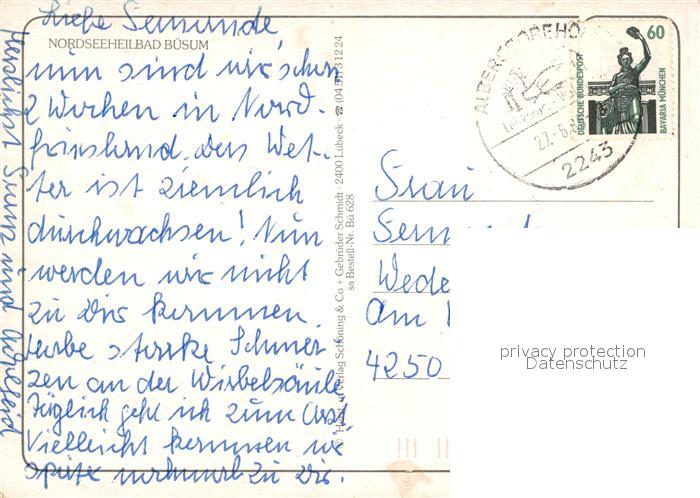 Liebe Semunde
NORDSEEHEILBAD BÜSUM
nun sind wir schon
2 Wochen in Nord-
friesland. Das Wet-
ter ist ziemlich
durchwachsen! Nun
werden wir nicht
zu Dir kommen.
Habe starke Schmer
zen an der Wirbelsäule
Täglich geht ich zum Arzt
Vielleicht kommen wir
später nochmal zu Dir.
Herzlichst Susn und Adelheid
Verlag Schöning & Co + Gebrüder Schmidt · 2400 Lübeck · ☎ (04 51) 3 12 24
sa Bestell-Nr. Bü 628
ALBERSDORF HO
27.-6.8
2243
60
DEUTSCHE BUNDESPOST
BAVARIA MÜNCHEN
Frau
Wede
Am
4250
privacy protection
Datenschutz